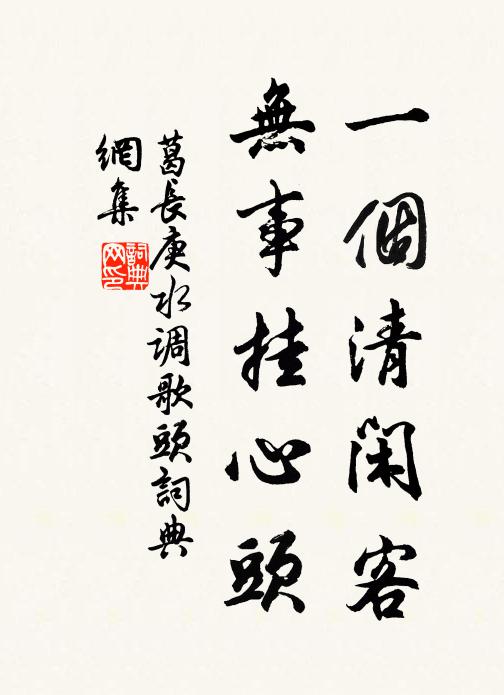 一個清閑客
無事挂心頭
葛長庚水调歌頭詞典
網集
詞典網印